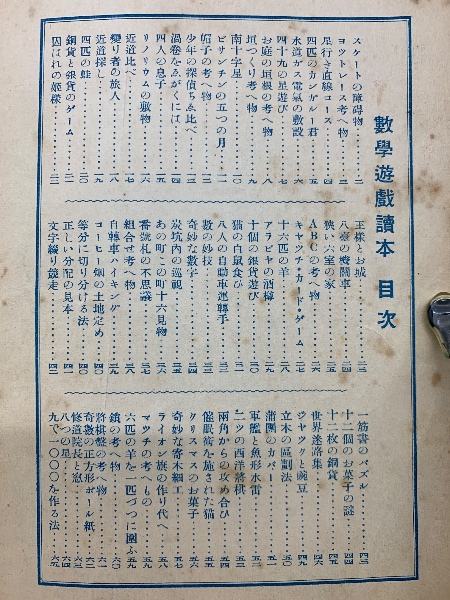 數學遊戲讀本 目次
スケートの障碍物……二
ヨツトレース考へ物……三
星行き直線コース……四
四匹のカンガルー君……五
水道ガス電氣の敷設……六
四十九の星遊び……七
お庭の垣根の考へ物……八
垣つくり考へ物……九
南十字星……一〇
ビサンチンの五つの月……一一
帽子の考へ物……一二
少年の探偵ちゑ比べ……一三
渦卷をゑがくには……一四
四人の息子……一五
リノリウムの敷物……一六
近道比べ……一七
變り者の旅人……一八
近道探し……一九
四匹の蛙……二〇
銅貨と銀貨のゲーム……二一
囚はれの姬樣……二二
王樣とお城……二三
八臺の機關車……二四
狹い六室の家……二五
ABCの考へ物……二六
キヤツチ・カード・ゲーム……二七
十六匹の羊……二八
アラビヤの酒樽……二九
十個の銀貨遊び……三〇
猫の白鼠食ひ……三一
八人の自動車運轉手……三二
數の妙技……三三
奇妙な數字……三四
炭坑內の巡視……三五
あの町この町十六見物……三六
番號札の不思議……三七
組合せ考へ物……三八
自轉車ハイキング……三九
コーヒー畑の土地定め
等分に切り分ける法
正しい分配の見本
文字綴り競走……四二
一筋書のパズル……四三
十二個のお菓子の謎……四四
十二枚の銅貨
世界迷路集
ジヤツクと豌豆
立木の區劃法……五〇
蒲團のカバー……五一
軍艦と魚形水雷
二ツの西洋將棋
兩角からの攻め合ひ
催眠術を施された猫
クリスマスのお菓子
奇妙な寄木細工
ライオン旗の作り代へ
マツチの考へもの
六匹の羊を一匹づつに圍ふ
鎖の考へ物
將棋盤の考へ物
奇數の正方形ボール紙
修道院長と窓
八つの星……六四
九で一〇〇〇を作る法……六五